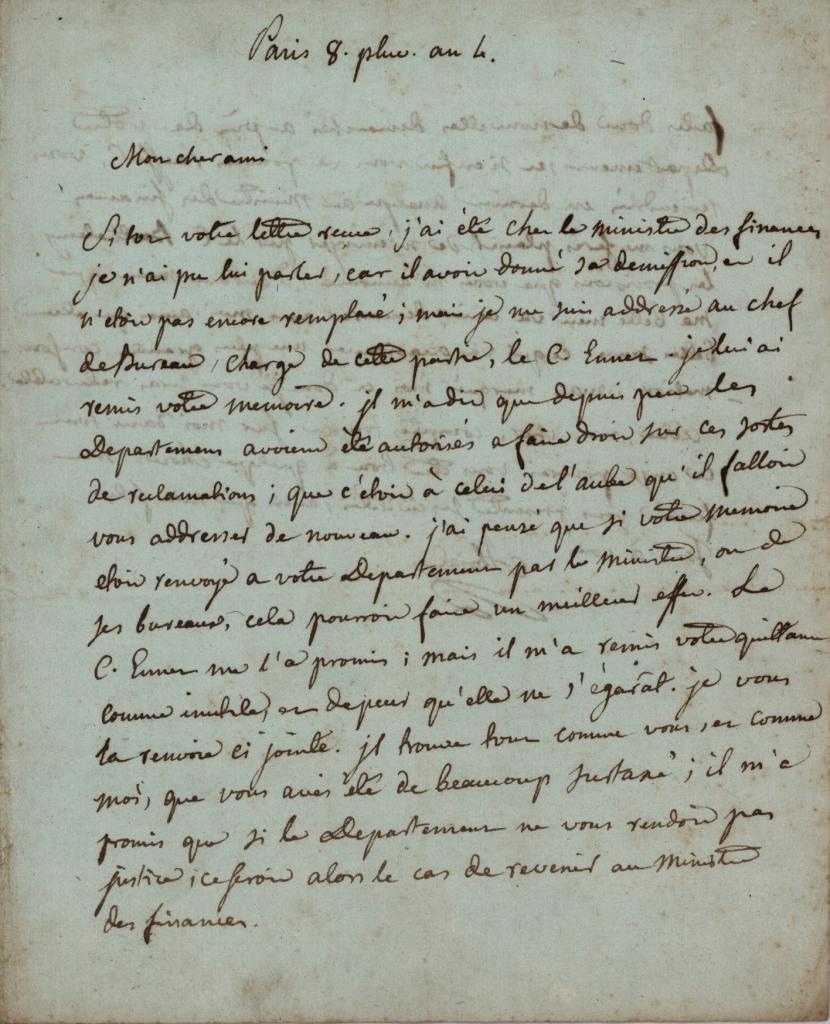 Paris 8. pluv. an 4.
Mon cher ami
Sitot votre lettre recue, j'ai été chez le ministre des finances
je n'ai pu lui parler, car il avoit donné sa demission, et il
n'étoit pas encore remplacé ; mais je me suis addressé au chef
de Bureau, chargé de cette partie, le C. Enner. je lui ai
remis votre memoire. jl m'a dit que depuis peu les
Departemens avoient été autorisés a faire droit sur ces sortes
de reclamations ; que c'étoit à celui de l'aube qu'il falloit
vous addresser de nouveau. j'ai pensé que si votre memoire
etoit renvoyé a votre Departement par le ministre, ou de
ses bureaux, cela pourroit faire un meilleur effet. Le
C. Enner me l'a promis ; mais il m'a remis votre quittance
comme inutile, et de peur qu'elle ne s'égarât. je vous
la renvoie ci jointe. jl trouve tout comme vous, et comme
moi, que vous aviés été de beaucoup surtaxé ; il m'a
promis que si le Departement ne vous rendoit pas
justice, ce seroit alors le cas de revenir au Ministre
des finances.